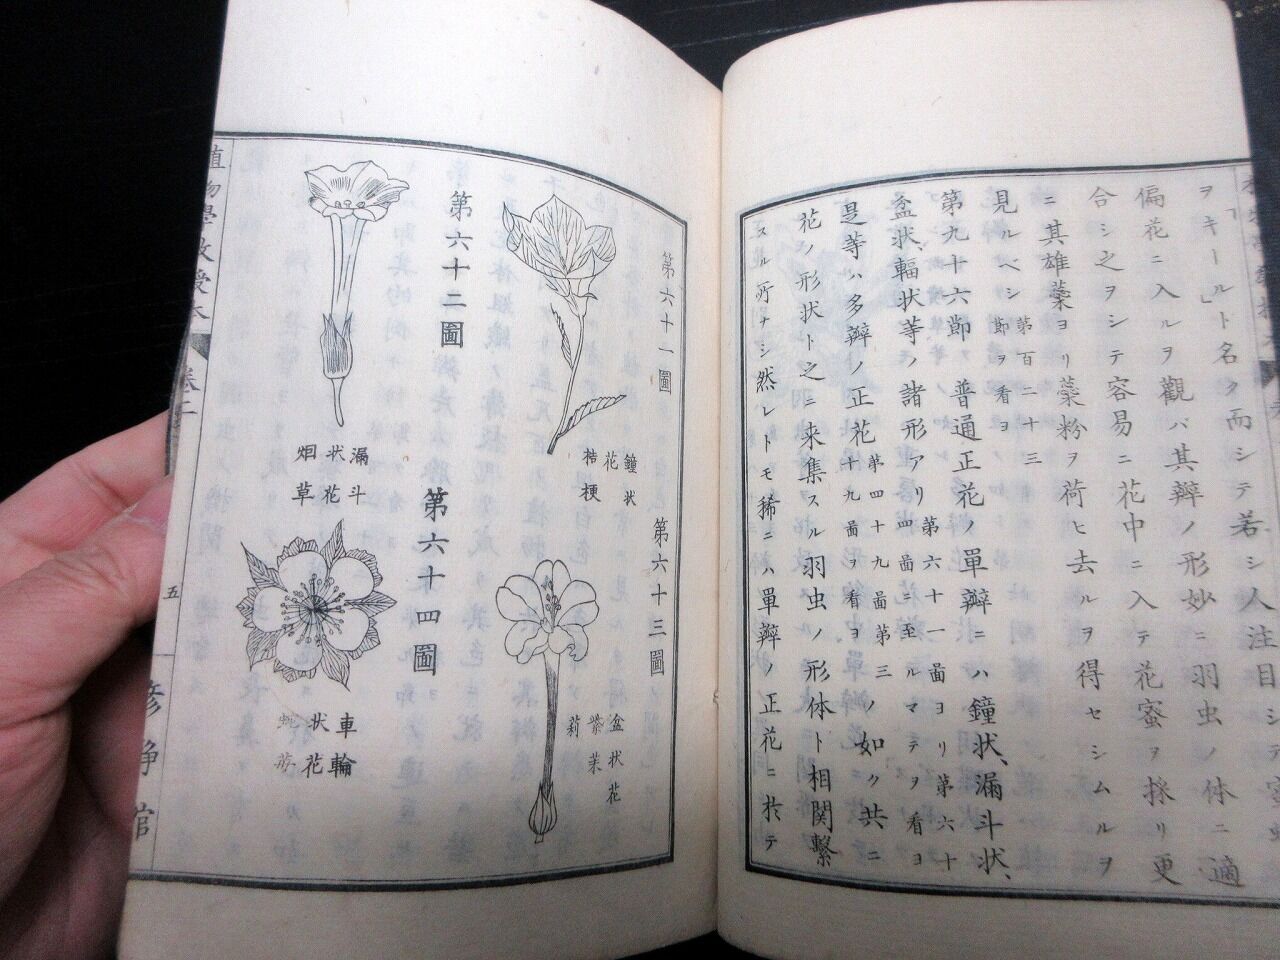 ヲ「キールト名ク而シテ若シ人注目シテ
偏花ニ入ルヲ觀バ其瓣ノ形妙ニ羽虫ノ体ニ適
合シ之ヲシテ容易ニ花中ニ入テ花蜜ヲ採リ更
ニ其雄蘂ヨリ蘂粉ヲ荷ヒ去ルヲ得セシムルヲ
見ルベシ第百二十三節ヲ看ヨ
第九十六節 普通正花ノ單瓣ニハ鐘状、漏斗状、
盆状輻状等ノ諸形アリ第六十一圖ヨリ第六十四圖ニ至ルマテヲ看ヨ
是等ハ多瓣ノ正花第四十九圖第三十九圖ヲ看ヨノ如ク共ニ
花ノ形状ト之ニ来集スル羽虫ノ形体ト相関繋
スル所ナシ然レトモ稀ニハ單瓣ノ正花ニ於テ
第六十一圖
鐘状花
桔梗
第六十三圖
盆状花
紫茉莉
第六十二圖
漏斗状花
烟草
第六十四圖
車輪状花
植物學教授本
卷二
五